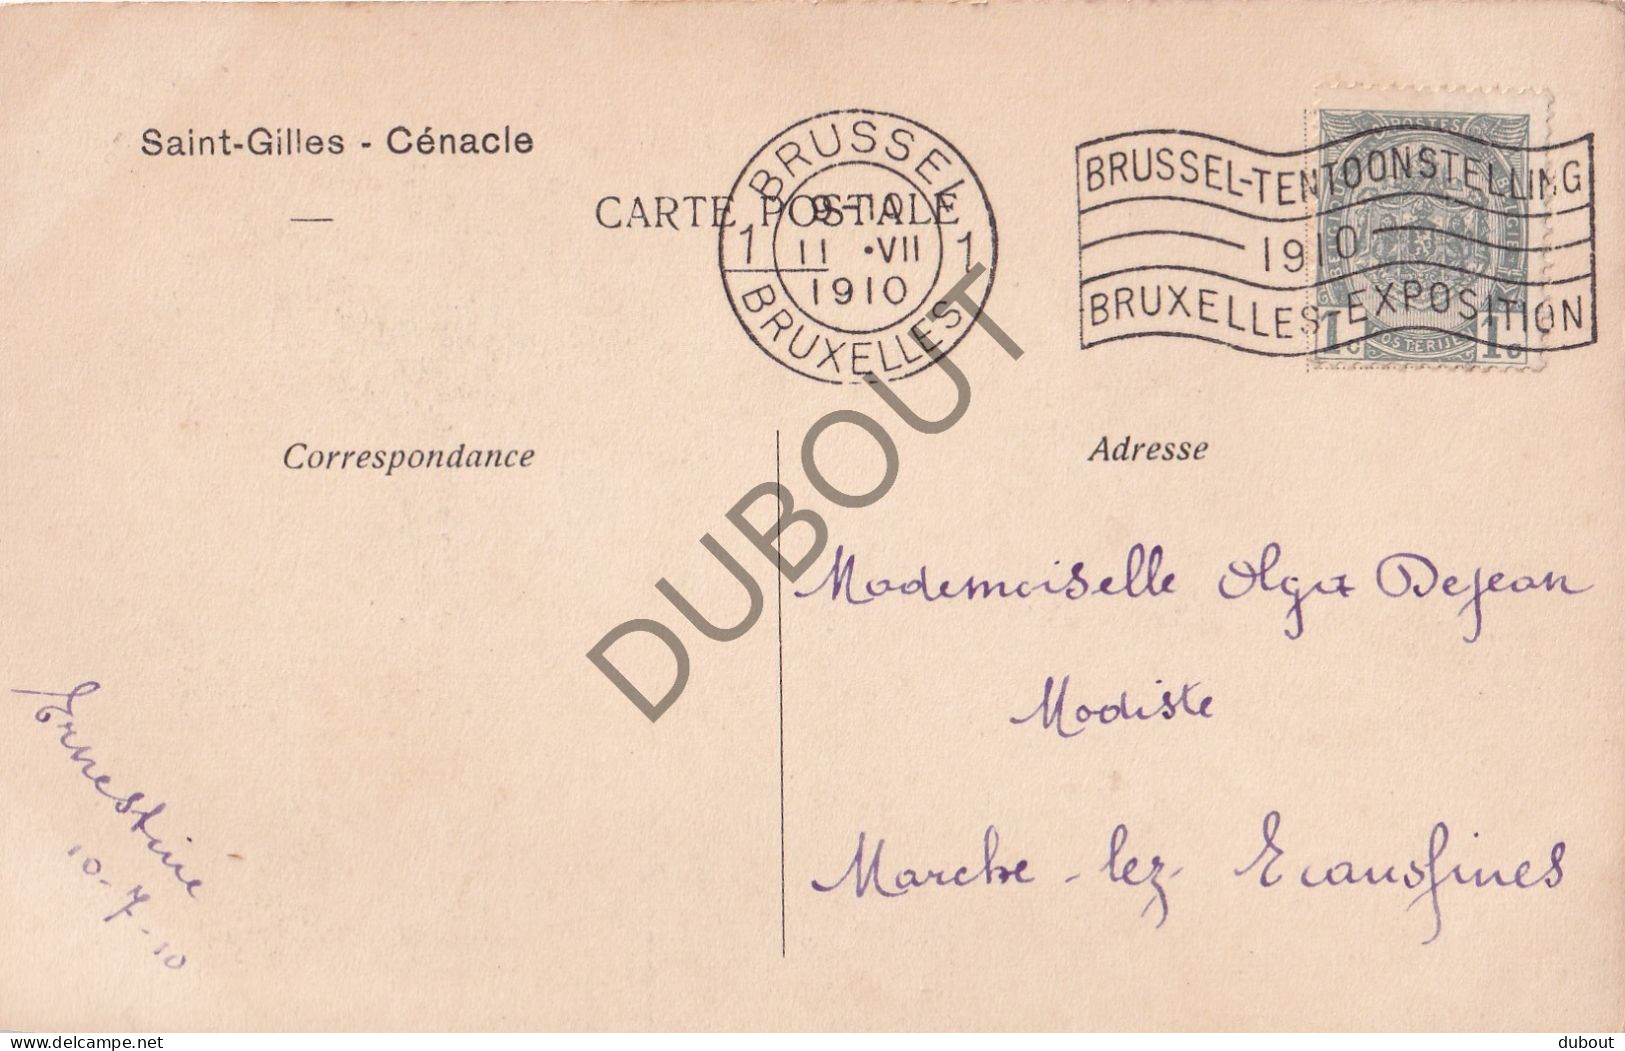 Saint-Gilles - Cénacle
CARTE POSTALE
BRUSSEL
9-10
1 11 •VII 1
1910
BRUXELLES
POSTES
BRUSSEL-TENTOONSTELLING
1910
BRUXELLES-EXPOSITION
1c 1c
Correspondance
Adresse
DUBOUT
Mademoiselle Olga Dejean
Modiste
Marche-lez-Ecaussines
Ernestine
10-7-10
delcampe.net
dubout